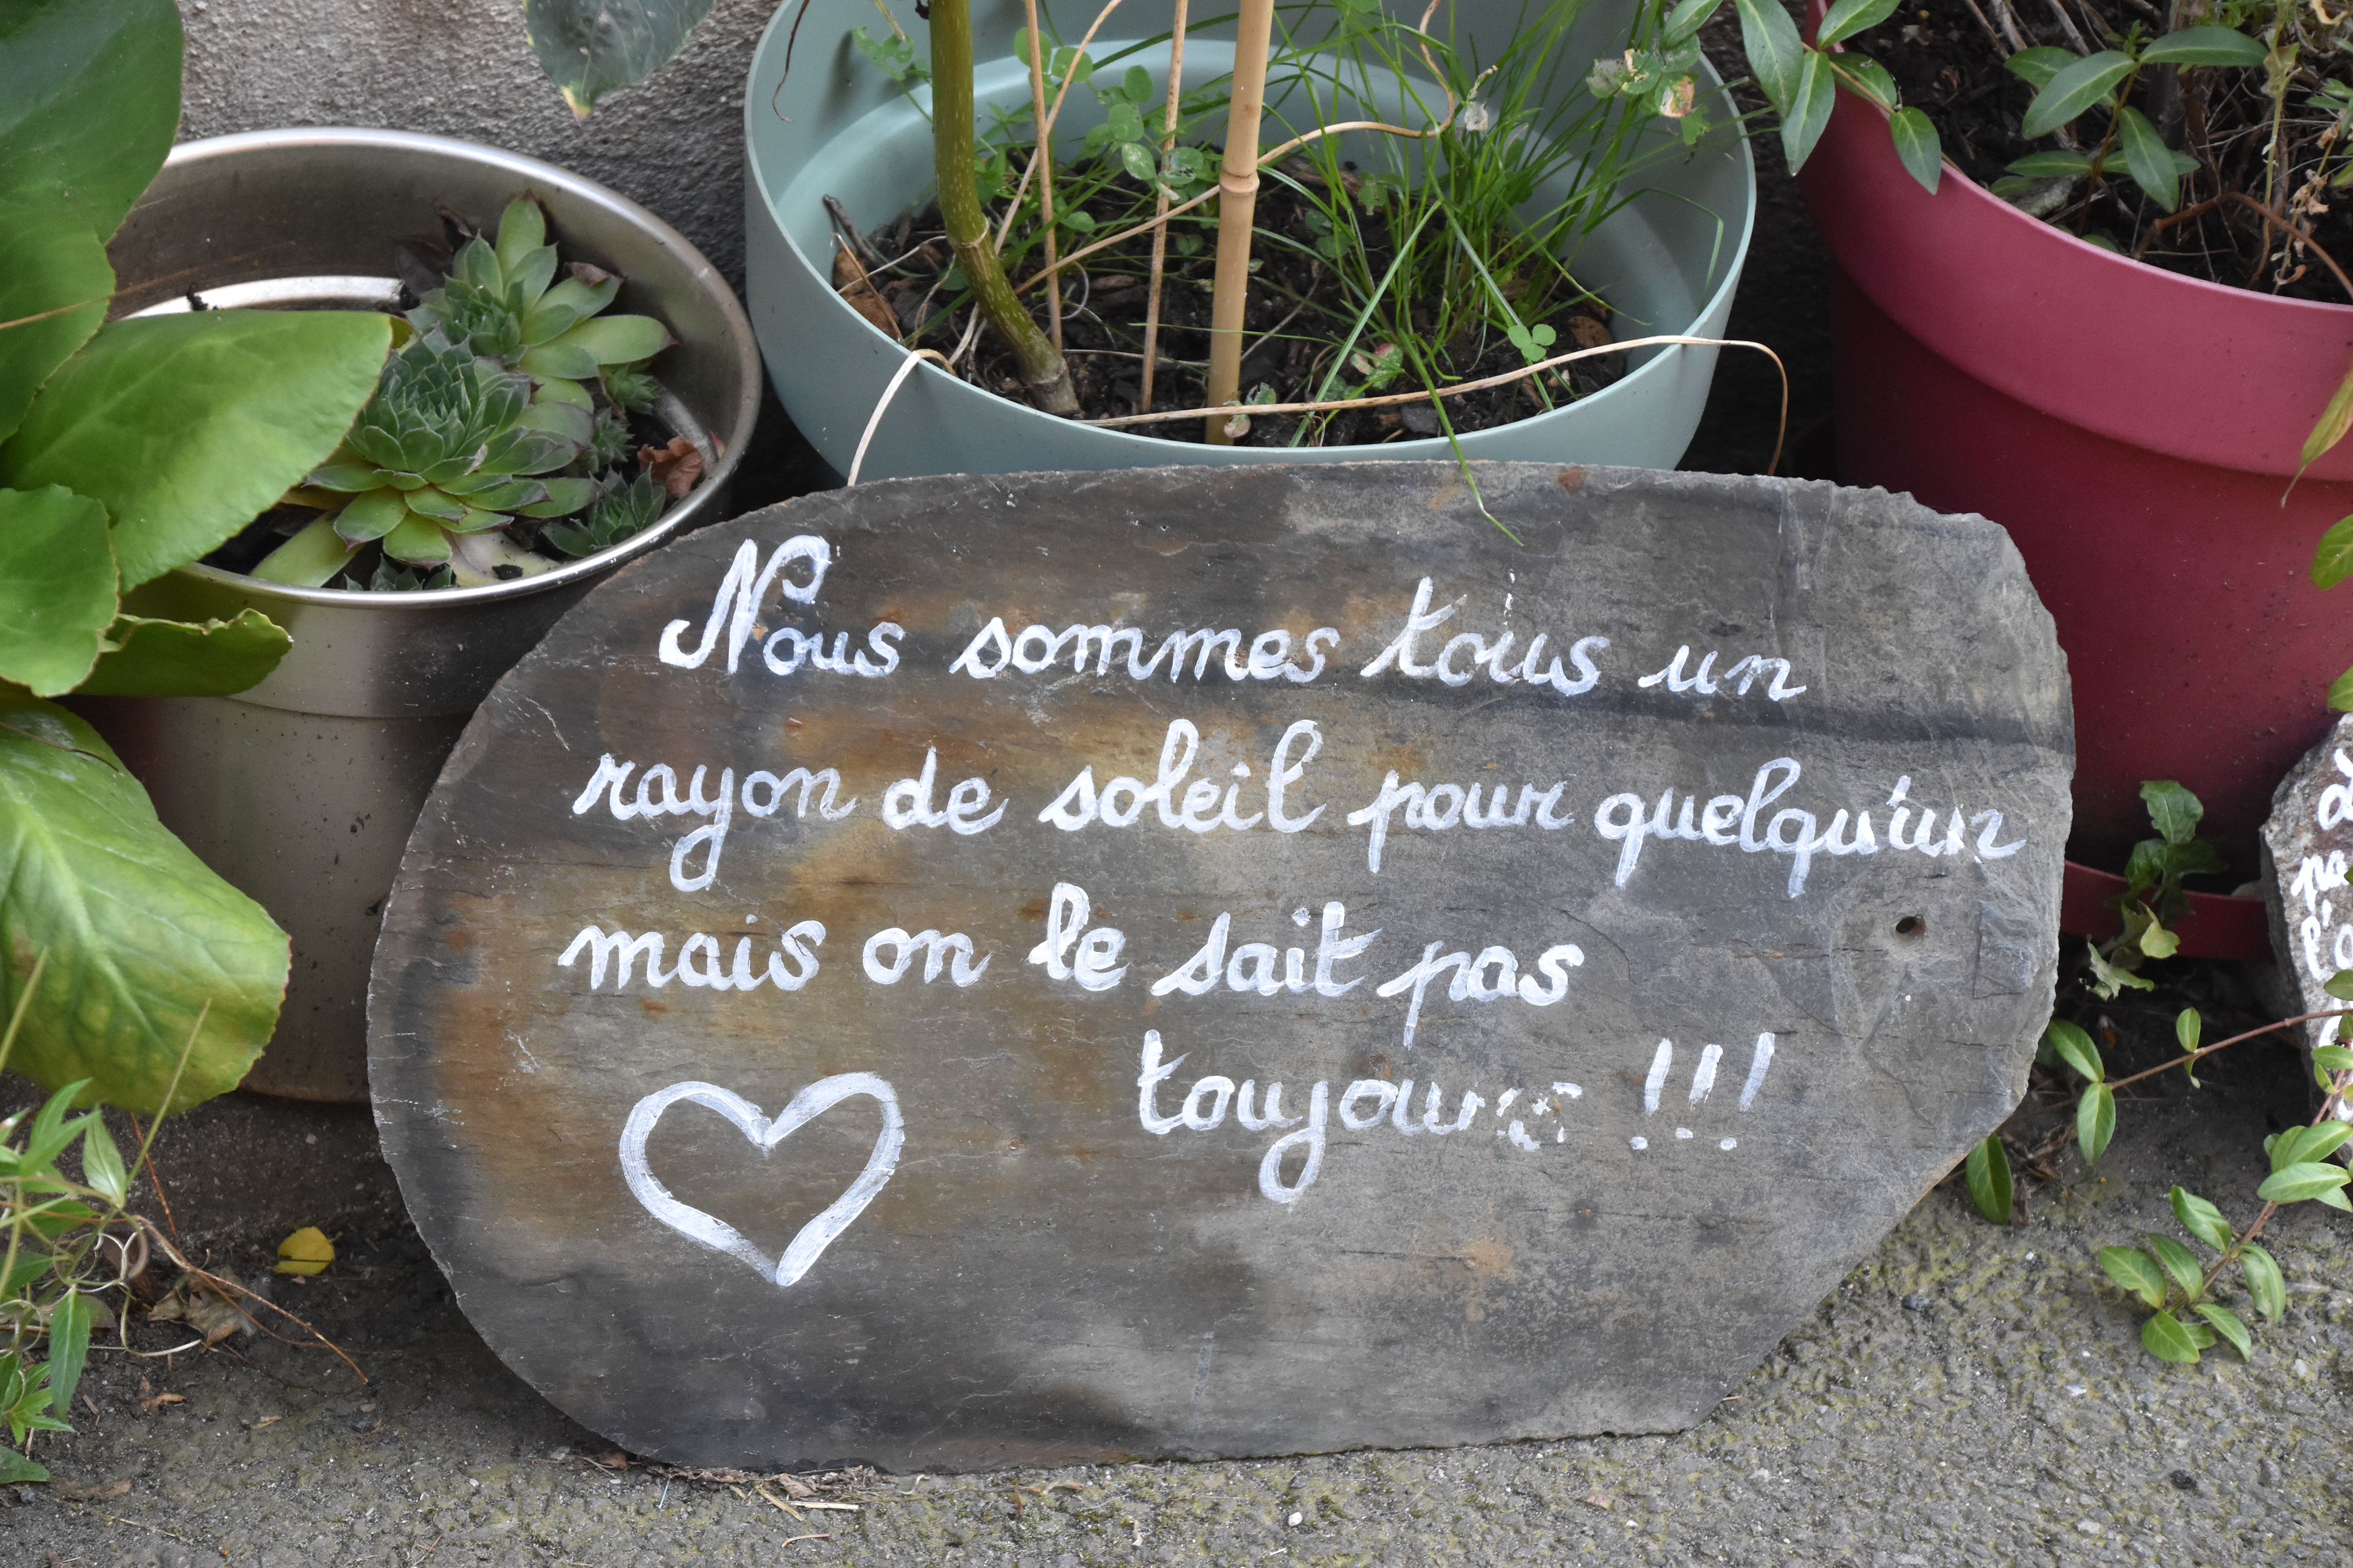 Nous sommes tous un
rayon de soleil pour quelqu'un
mais on le sait pas
toujours !!!